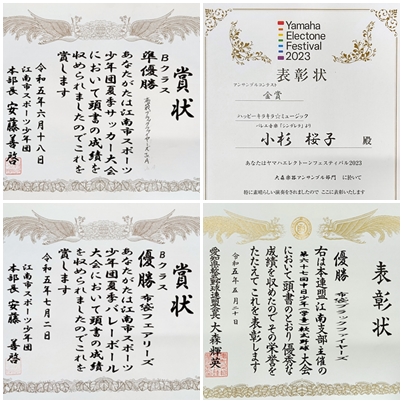 賞状
Bクラス
準優勝
あなたがたは江南市スポーツ
少年団夏季サッカー大会
において頭書の成績を
収められましたのでこれを
賞します
令和五年六月十八日
江南市スポーツ少年団
本部長 安藤 善啓
Yamaha
Electone
Festival
2023
表彰状
アンサンブルコンテスト
金賞
ハッピーキラキラ☆ミュージック
バレエ音楽「シンデレラ」より
小杉 桜子 殿
あなたはヤマハエレクトーンフェスティバル2023
大垣楽器アンサンブル部門 に於いて
特に素晴らしい演奏をされましたので ここに表彰いたします
賞状
Bクラス
優勝 布袋フェアリーズ
あなたがたは江南市スポーツ
少年団夏季バレーボール
大会において頭書の成績
を収められましたのでこれを
賞します
令和五年七月二日
江南市スポーツ少年団
本部長 安藤 善啓
表彰状
優勝 布袋ブラックファイヤーズ
右は本連盟江南支部主催の
大会
において頭書のとおり優秀な
成績を収めたのでその栄誉を
たたえてこれを表彰します
令和五年五月二十日
大森輝英